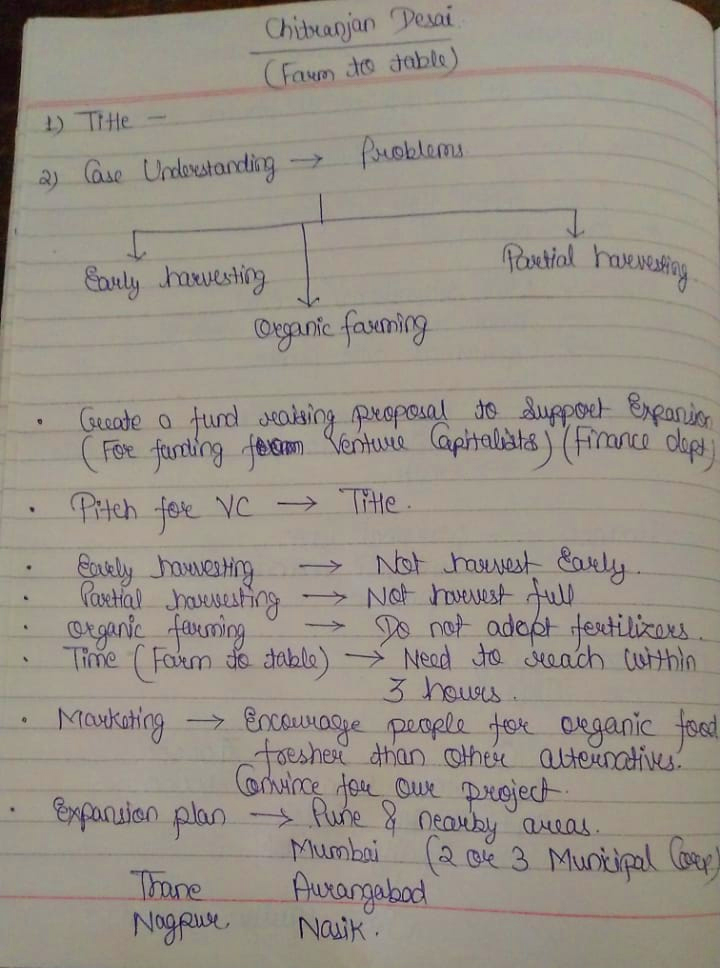 Chitranjan Desai
(Farm to table)
1) Title -
2) Case Understanding → Problems
Early harvesting
Partial harevesting
Organic farming
• Create a fund raising proposal to Support Expansion
(For funding from Venture Capitalists) (Finance dept)
• Pitch for VC → Title.
• Early harvesting → Not harvest Early.
• Partial harvesting → Not harvest full
• Organic farming → Do not adopt fertilizers.
• Time (Farm to table) → Need to reach within
3 hours.
• Marketing → Encourage people for organic food
fresher than other alternatives.
Convince for our project.
• Expansion plan → Pune & nearby areas.
Mumbai (2 or 3 Municipal Corp)
Thane Aurangabad
Nagpur Nasik.